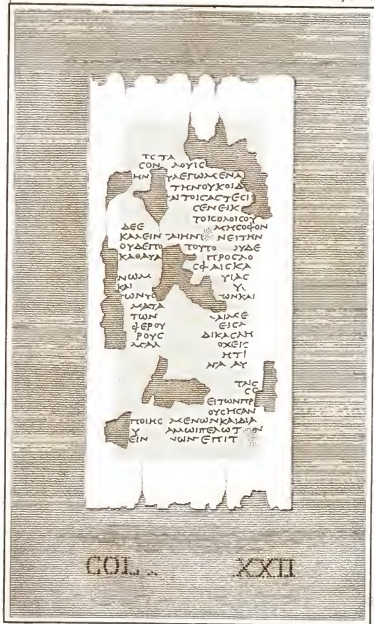 ΤϹΤΑ
ϹΟΝ ΛΟΥΙϹ
ΗΝ ΥΛΕΓΩΜΕΝΑ
ΤΗΝΟΥΚΟΙΔ
ΑΙΤΟΙϹΑϹΤΕϹΙ
ϹΕΝΕΙΚ
ΤΟΙϹΟΛΟΙϹΟΥ
ΔΕΕ ΑΜϹΟΦΟΝ
ΚΑΛΕΙΝ ΑΙΗΝΤ ΝΕΙΤΗΝ
ΟΥΔΕΠΟ ΤΟΥΤΟ ΟΥΔΕ
ΚΑΘΑΥΑ ΠΡΟϹΛΟ
ϹΦΑΙϹΚΑ
ΝΩΜ ΥΙΑϹ
ΚΑΙ Υ
ΩΝΥΟ ΩΝΚΑΙ
ΜΑΤΑ
ΤΩΝ ΑΙΜΕ
ΦΕΡΟΥ ΕΙϹΑ
ΡΟΥϹ ΔΙΚΑϹΛΗ
ΑϹΑΛ ΟΧΕΙϹ
ΗΤΙ
ΑΓΑ ΑΥ
ΤΑΙϹ
ϹϹ
ΕΙΤΩΝΠΡ
ΟΥϹΗϹΑΝ
ΠΟΙΗϹ ΜΕΝΩΝΚΑΙΔΙΑ
Υ ΑΜΩΙΠΕΛΩΤ ΟΝ
ΕΙΝ ΝΩΝΤΕΠΙΤ
COL. XXII